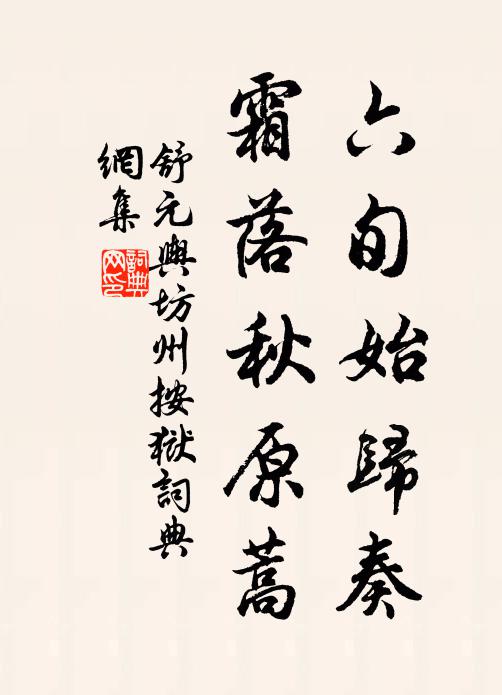 六旬始歸奏
霜落秋原蒿
舒元輿坊州按獄詞典
網集
詞典
网印